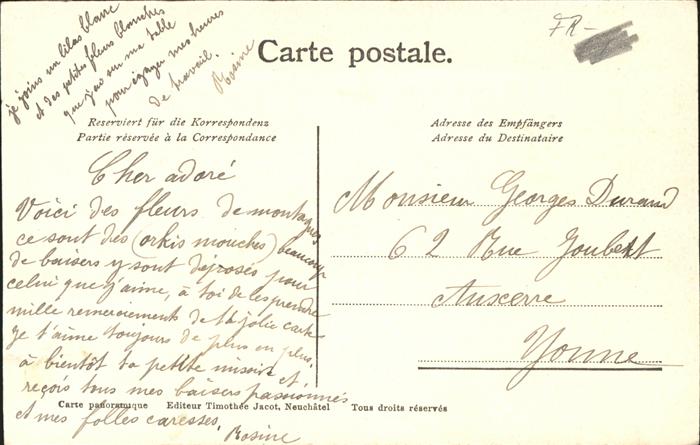 je joins un lilas blanc
et des petites fleurs blanches
que j'ai sur ma table
pour égayer mes heures
de travail.
Rosine
FR-
Carte postale.
Reserviert für die Korrespondenz
Partie réservée à la Correspondance
Adresse des Empfängers
Adresse du Destinataire
Cher adoré
Voici des fleurs de montagnes
ce sont des (orkis mouches) beaucoup
de baisers y sont déposés pour
celui que j'aime, à toi de les prendre
mille remerciements de ta jolie carte
je t'aime toujours de plus en plus,
à bientôt ta petite et
reçois tous mes baisers passionnés
et mes folles caresses,
Rosine
Monsieur Georges Durand
62 Rue Joubert
Auxerre
Yonne
Carte panoramique Editeur Timothée Jacot, Neuchâtel Tous droits réservés